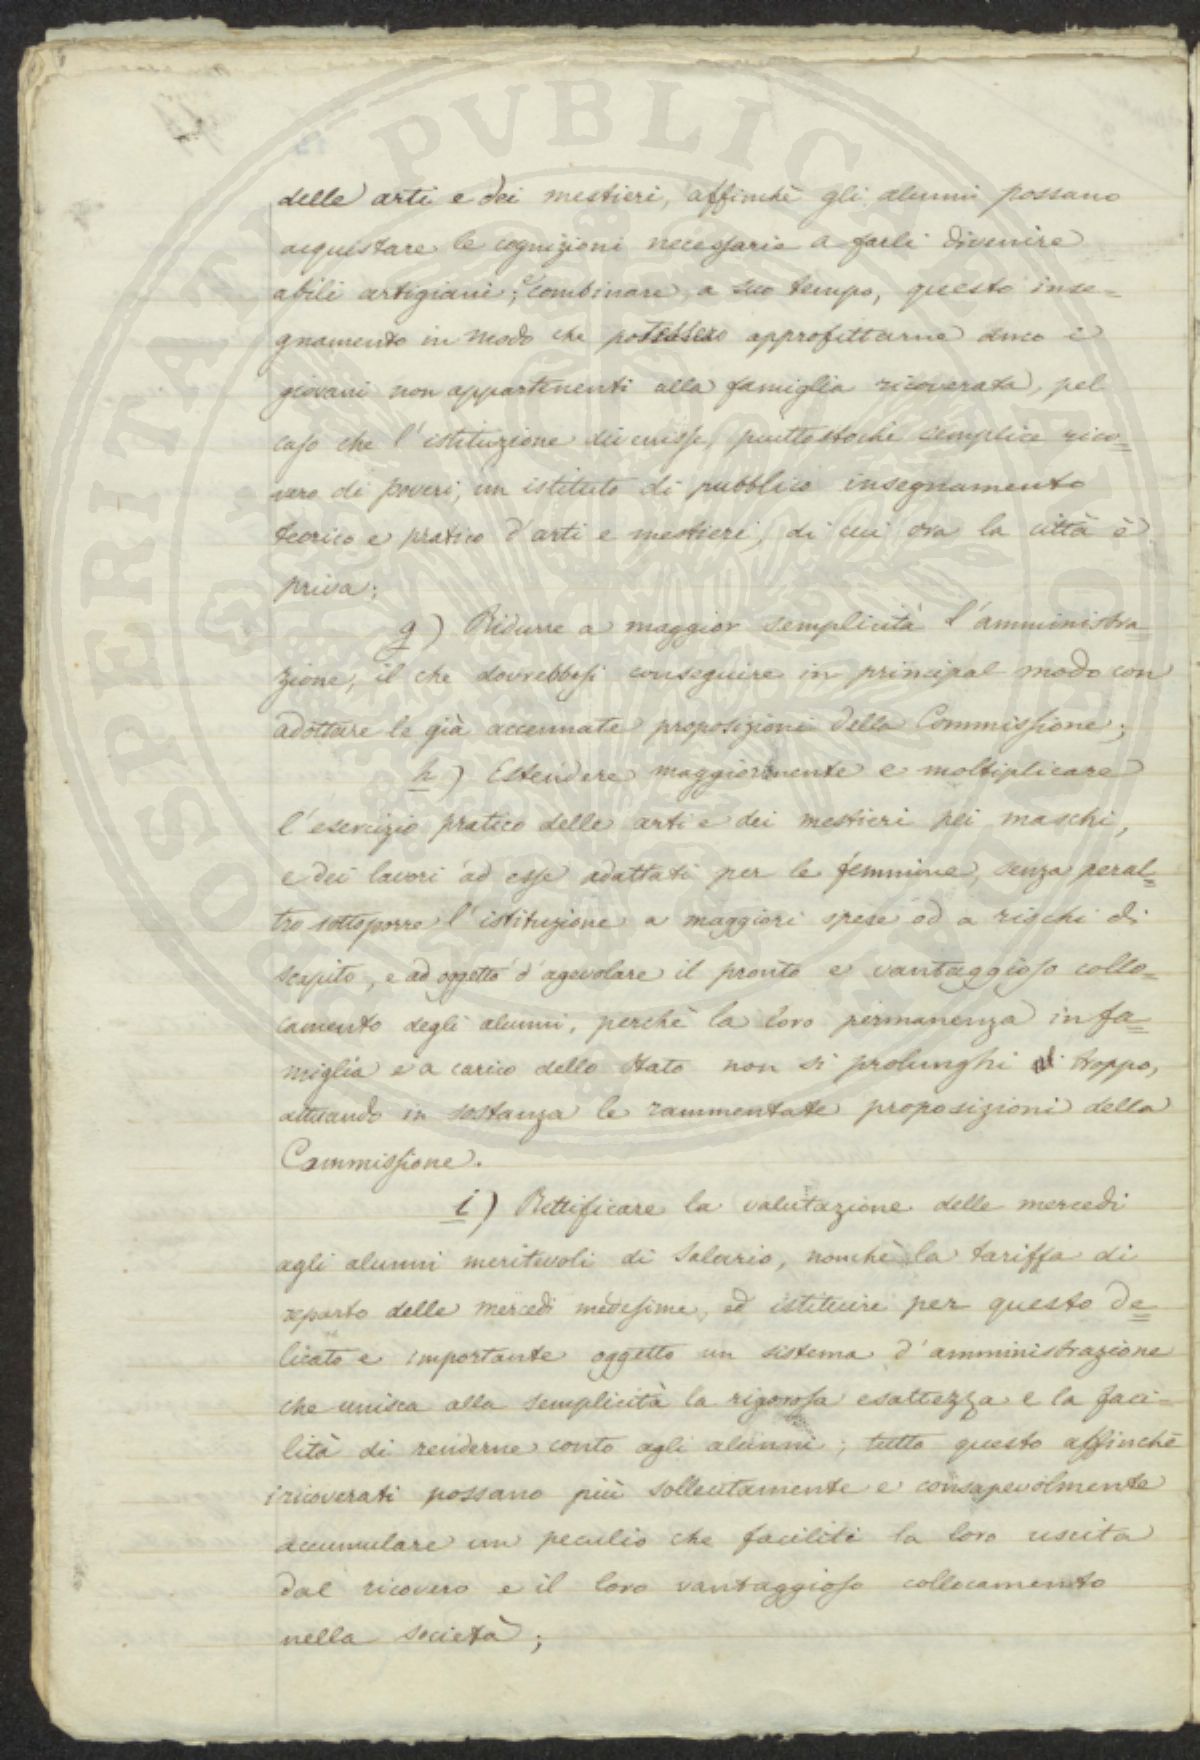 delle arti e dei mestieri, affinchè gli alunni possano
acquistare le cognizioni necessarie a farli divenire
abili artigiani; e combinare, a suo tempo, questo inse=
gnamento in modo che potessero approfittarne anco i
giovani non appartenenti alla famiglia ricoverata, pel
caso che l'istituzione divenisse, piuttostochè semplice rico=
vero di poveri, un istituto di pubblico insegnamento
teorico e pratico d'arti e mestieri, di cui ora la città è
priva;
g) Ridurre a maggior semplicità l'amministra
zione, il che dovrebbesi conseguire in principal modo con
adottare le già accennate proposizioni della Commissione;
h) Estendere maggiormente e moltiplicare
l'esercizio pratico delle arti e dei mestieri pei maschi,
e dei lavori ad esse adattati per le femmine, senza peral=
tro sottoporre l'istituzione a maggiori spese od a rischi di
scapito, e ad oggetto d'agevolare il pronto e vantaggioso collo=
camento degli alunni, perchè la loro permanenza in fa=
miglia e a carico dello Stato non si prolunghi di troppo,
attuando in sostanza le rammentate proposizioni della
Commissione.
i) Rettificare la valutazione delle mercedi
agli alunni meritevoli di salario, nonchè la tariffa di
reparto delle mercedi medesime, ed istituire per questo de=
licato e importante oggetto un sistema d'amministrazione
che unisca alla semplicità la rigorosa esattezza e la faci=
lità di renderne conto agli alunni; tutto questo affinchè
i ricoverati possano più sollecitamente e consapevolmente
accumulare un peculio che faciliti la loro uscita
dal ricovero e il loro vantaggioso collocamento
nella società;